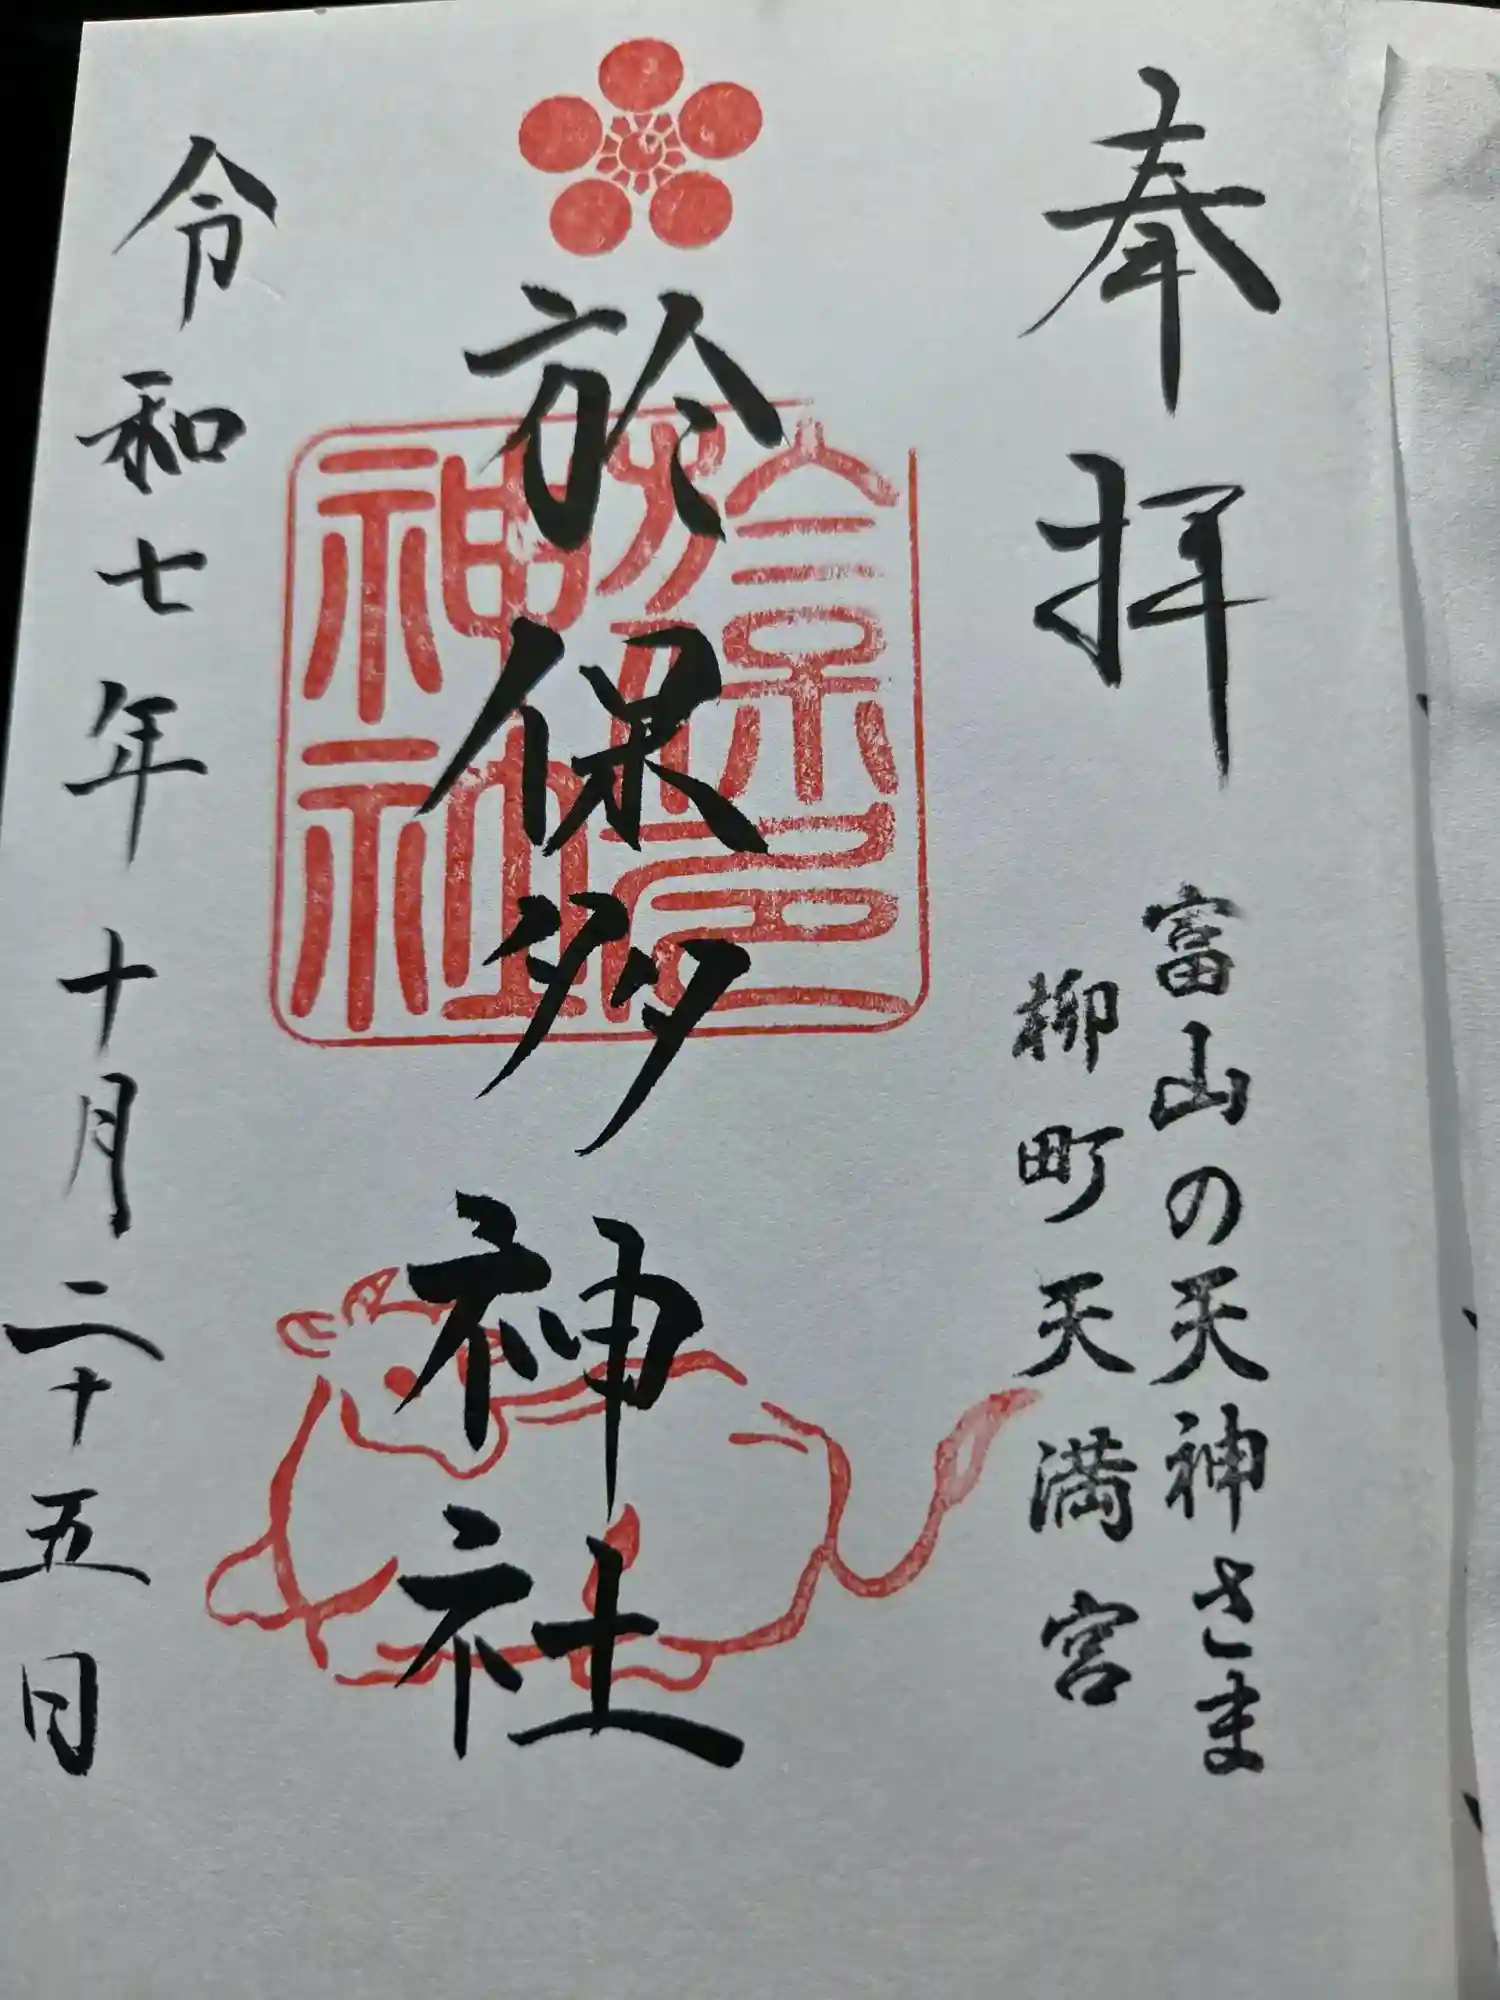 奉拝
富山の天神さま
柳町天満宮
於保多神社
於保多
神社
令和七年十月二十五日